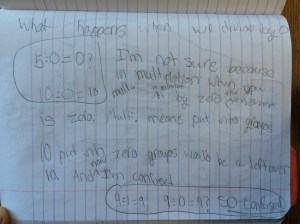 What happens when we divide by 0
5÷0=0?
10÷0=10
I'm not sure because
in multiplication when you
multi. a number by zero the answer
is zero. Multi. means put into groups
10 put into zero groups would be a left over
10. And now I'm confused
9÷1=9 9÷0=9? SO confused